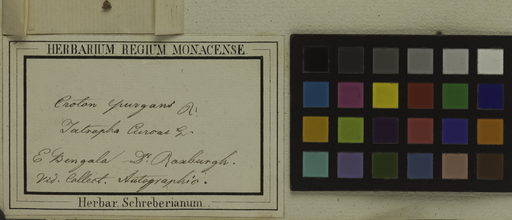 HERBARIUM REGIUM MONACENSE.
Croton purgans R.
Jatropha Curcas L.
E Bengala Dr Roxburgh.
Vid. Collect. Autographic.
Herbar. Schreberianum